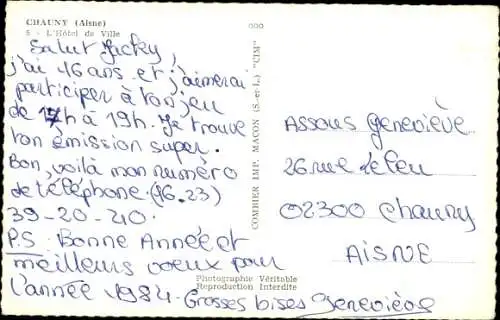 CHAUNY (Aisne)
5 - L'Hôtel de Ville
Salut Jacky,
j'ai 16 ans et j'aimerai
participer à ton jeu
de 17h à 19h. Je trouve
ton émission super.
Bon, voilà mon numéro
de téléphone (16.23)
39-20-40.
P.S: Bonne Année et
meilleurs voeux pour
l'année 1984. Grosses bises Geneviève
Photographie Véritable
Reproduction Interdite
COMBIER IMP. MACON (S.-et-L.) "CIM"
Assous Geneviève
26 rue de Feu
02300 Chauny
AISNE